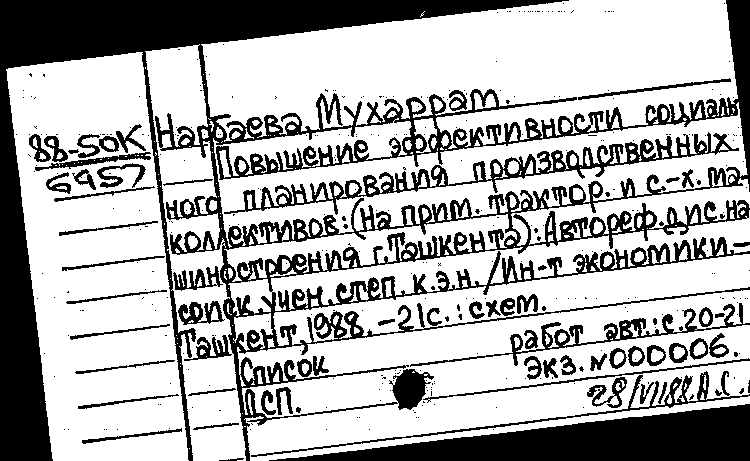 88-50К
6957
Нарбаева, Мухаррам.
Повышение эффективности социаль
ного планирования производственных
коллективов: (На прим. трактор. и с.-х. ма-
шиностроения г. Ташкента): Автореф. дис. на
соиск. учен. степ. к. э. н. / Ин-т экономики. —
Ташкент, 1988. - 21 с. : схем.
Список работ авт.: с. 20-21
ДСП. Экз. N000006.
28/VII88. А.С.